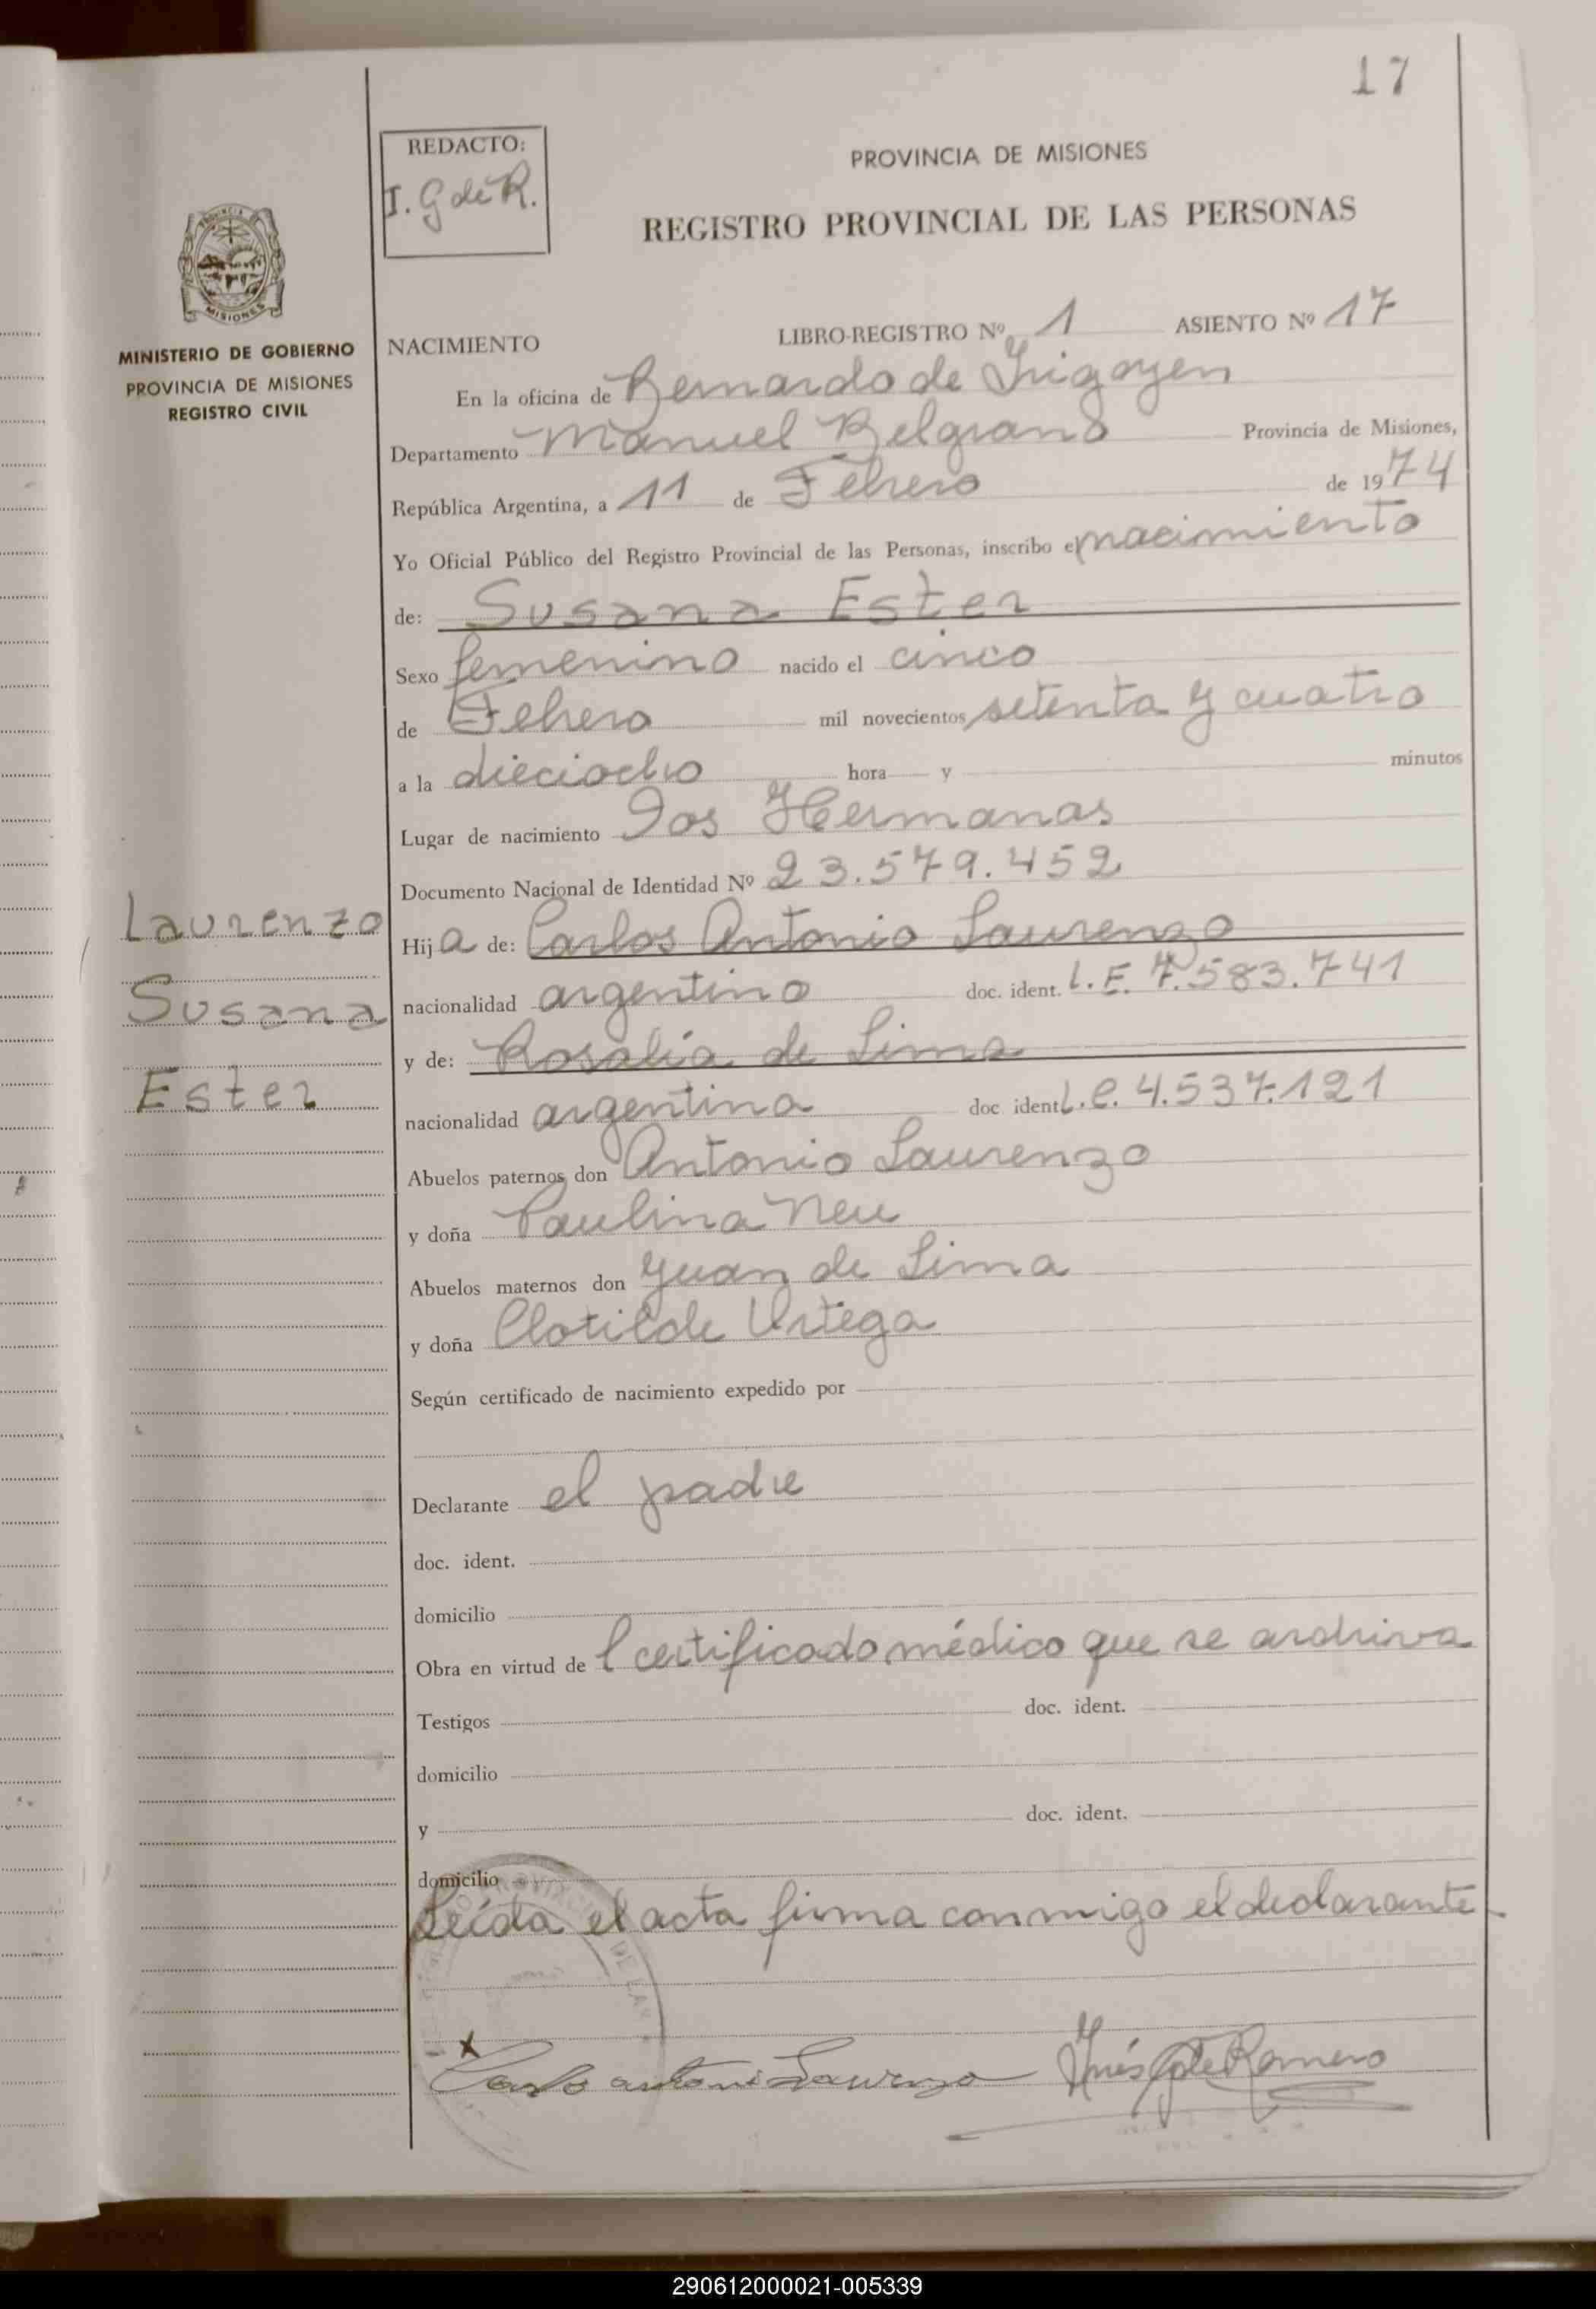 17
REDACTO:
I. G de R.
PROVINCIA DE MISIONES
REGISTRO PROVINCIAL DE LAS PERSONAS
MISIONES
MINISTERIO DE GOBIERNO
PROVINCIA DE MISIONES
REGISTRO CIVIL
NACIMIENTO LIBRO-REGISTRO Nº 1 ASIENTO Nº 17
En la oficina de Bernardo de Irigoyen
Departamento Manuel Belgrano Provincia de Misiones,
República Argentina, a 11 de Febrero de 1974
Yo Oficial Público del Registro Provincial de las Personas, inscribo el nacimiento
de: Susana Ester
Sexo femenino nacido el cinco
de Febrero mil novecientos setenta y cuatro
a la dieciocho hora y minutos
Lugar de nacimiento Dos Hermanas
Documento Nacional de Identidad Nº 23.579.452
Laurenzo
Susana
Ester
Hija de: Carlos Antonio Laurenzo
nacionalidad argentino doc. ident. L.E. 7.583.741
y de: Rosalía de Lima
nacionalidad argentina doc ident L.C. 4.537.121
Abuelos paternos don Antonio Laurenzo
y doña Paulina Neu
Abuelos maternos don Juan de Lima
y doña Clotilde Ortega
Según certificado de nacimiento expedido por
Declarante el padre
doc. ident.
domicilio
Obra en virtud de l certificado médico que se archiva
Testigos doc. ident.
domicilio
y doc. ident.
domicilio
Leída el acta firma conmigo el declarante
x Carlo antoni Laurenzo Inés G de Romero
290612000021-005339